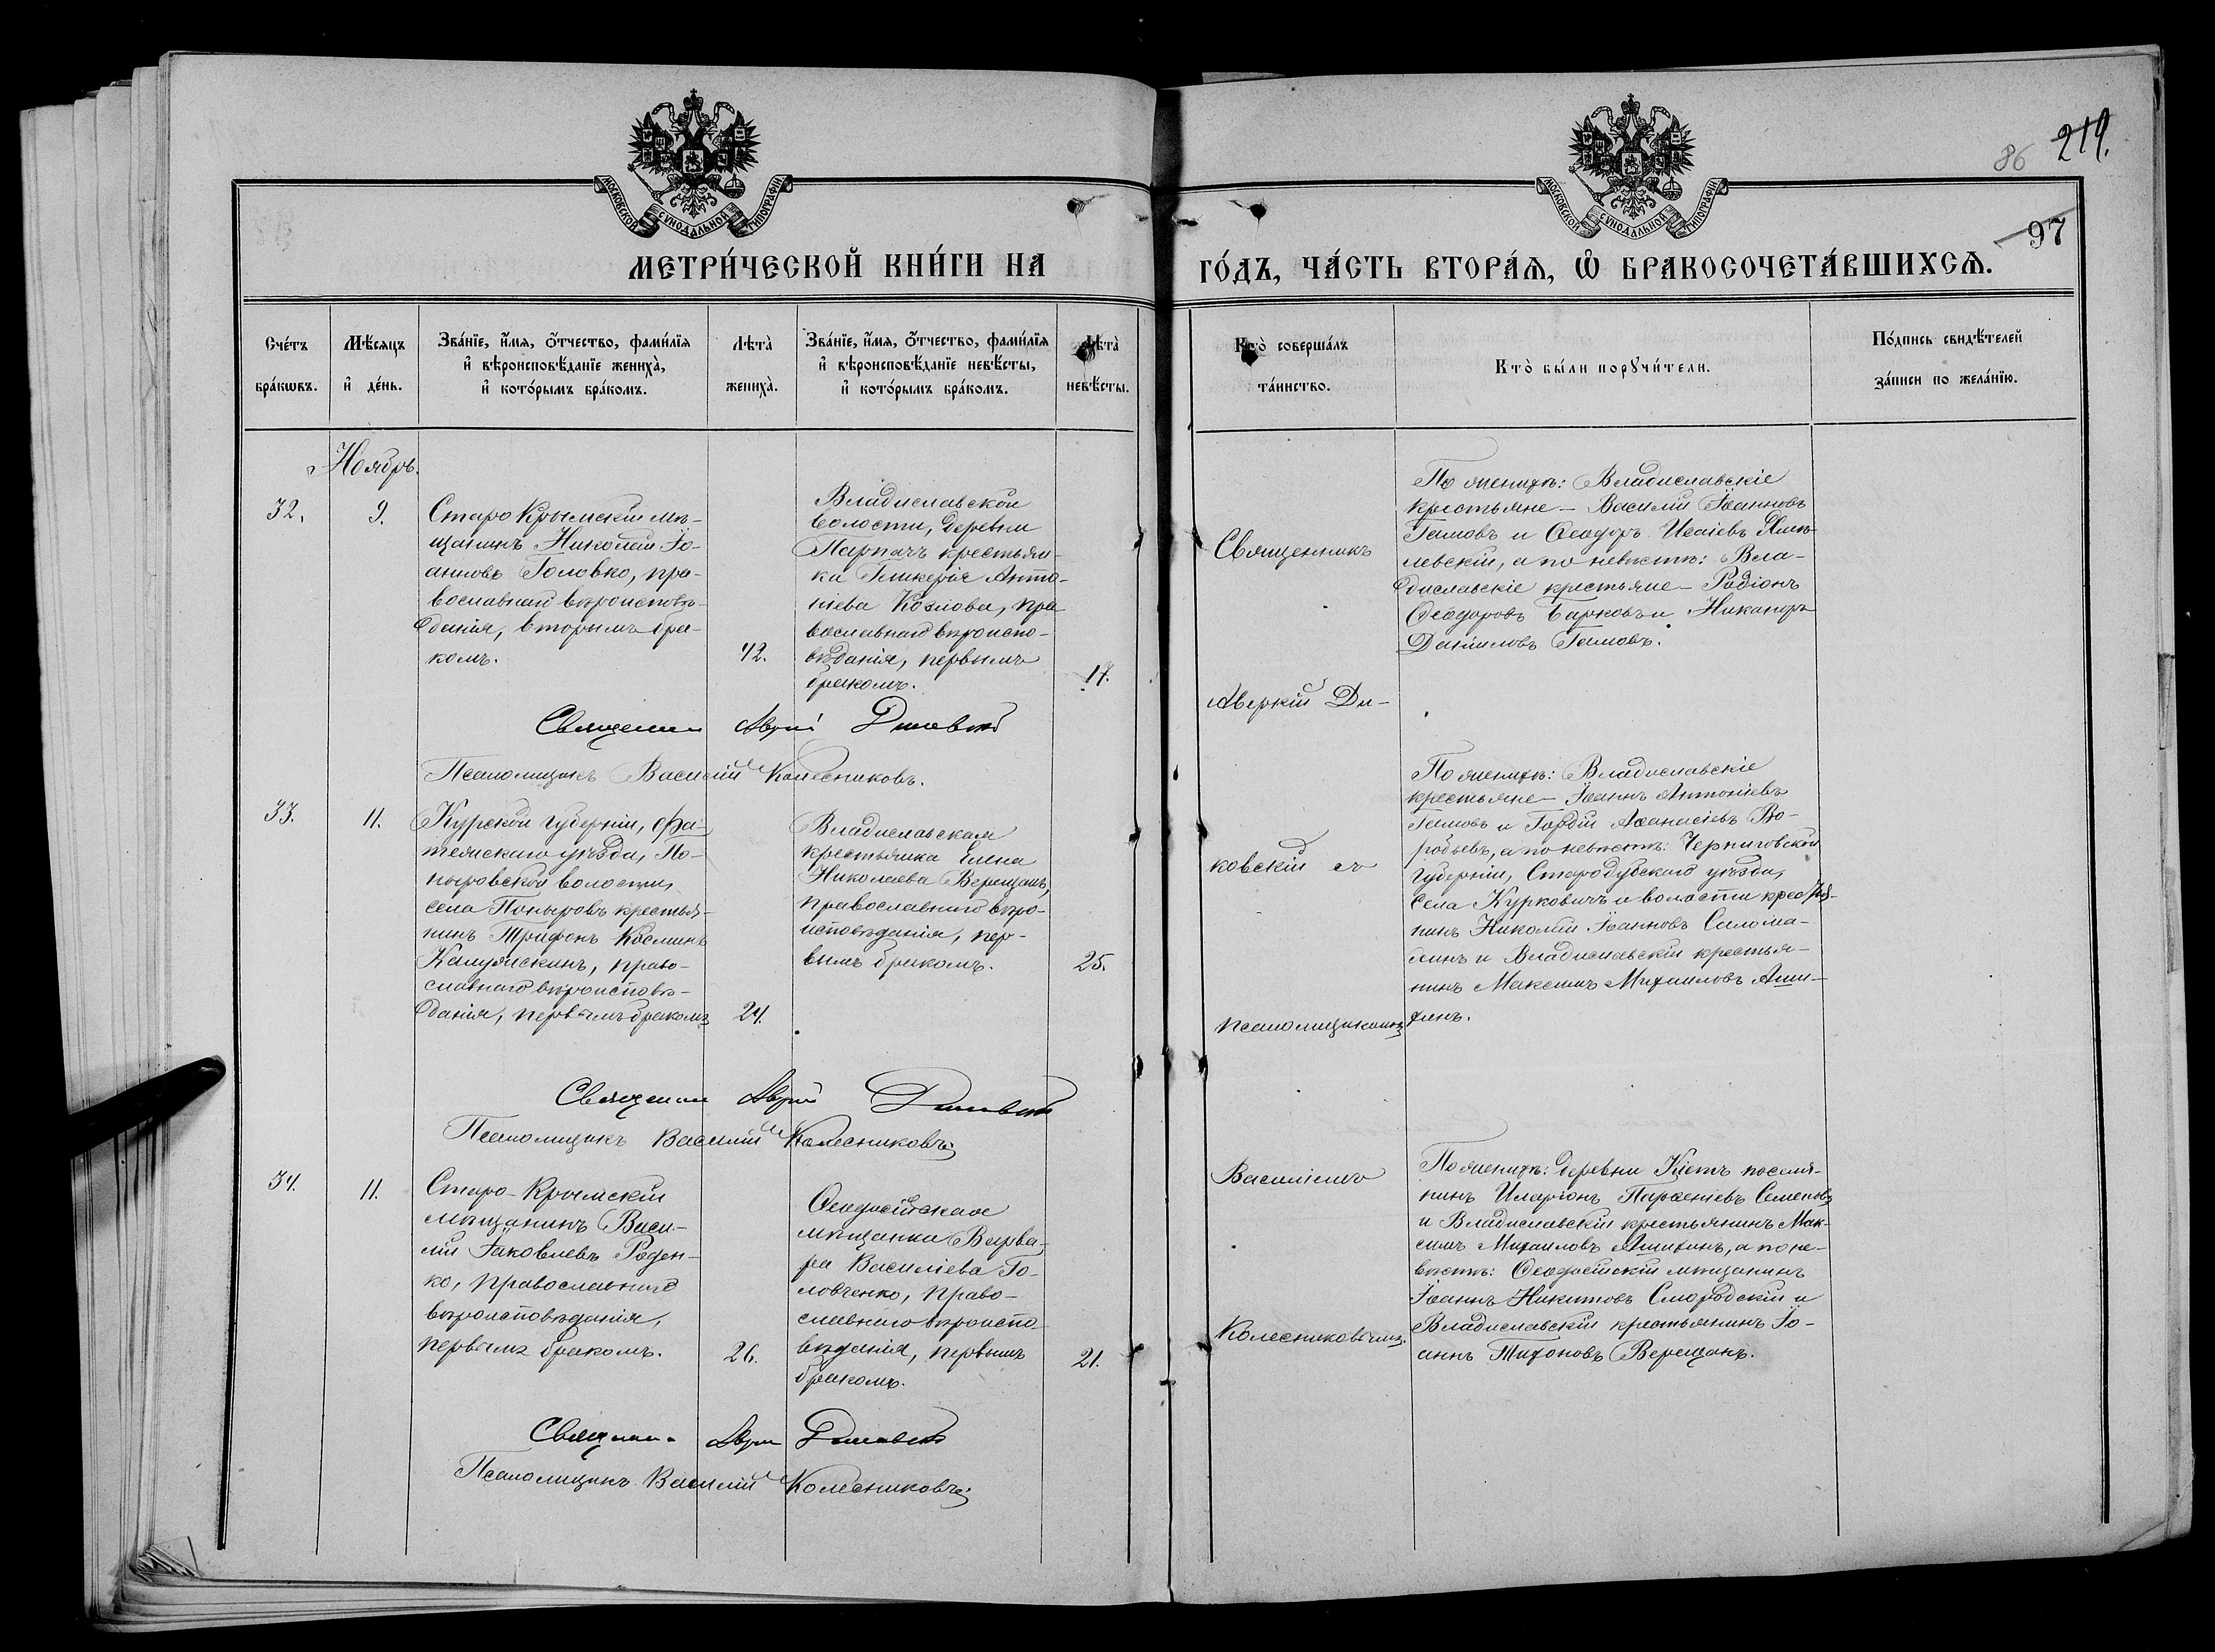 86 219.
97
МОСКОВСКОЙ СѴНОДАЛЬНОЙ ТИПОГРАФІИ
МОСКОВСКОЙ СѴНОДАЛЬНОЙ ТИПОГРАФІИ
МЕТРИ́ЧЕСКОЙ КНИ́ГИ НА
ГО́ДЪ, ЧА́СТЬ ВТОРА́Я, Ѽ БРАКОСОЧЕТА́ВШИХСѦ.
Сче́тъ
бра́кѡвъ.
Мѣ́сяцъ
и҆ де́нь.
Зва́нїе, и҆́мя, ѻ҆́тчество, фами́лїя
и҆ вѣроисповѣ́данїе жениха̀,
и҆ кото́рымъ бра́комъ.
Лѣта̀
жениха̀.
Зва́нїе, и҆́мя, ѻ҆́тчество, фами́лїя
и҆ вѣроисповѣ́данїе невѣ́сты,
и҆ кото́рымъ бра́комъ.
Лѣта̀
невѣ́сты.
Кто̀ соверша́лъ
та́инство.
Кто̀ бы́ли порꙋчи́тели.
По́дпись свидѣ́телей
за́писи по жела́нїю.
Ноябрь.
32.
9.
Старо Крымскій мѣ-
щанинъ Николай Іо-
анновъ Головко, пра-
вославнаго вѣроисповѣ-
данія, вторымъ бра-
комъ.
42.
Владиславской
волости, деревни
Парпачъ крестьян-
ка Гликерія Анто-
ніева Козлова, пра-
вославнаго вѣроиспо-
вѣданія, первымъ
бракомъ.
17.
Священникъ
Аверкій Ди-
ковскій съ
псаломщикомъ
Василіемъ
Колесниковымъ.
По женихѣ: Владиславскіе
крестьяне - Василій Іоанновъ
Гамовъ и Ѳеодоръ Исаіевъ
левскій, а по невѣстѣ: Вла-
диславскіе крестьяне - Родіонъ
Ѳеодоровъ Барковъ и Никаноръ
Даніиловъ Гамовъ.
Священникъ Аверкій Диковскій
Псаломщикъ Василій Колесниковъ.
33.
11.
Курской губерніи, Фа-
тежскаго уѣзда, По-
ныровской волости,
села Поныровъ крестья-
нинъ Трифонъ Косминъ
Калужскихъ, право-
славнаго вѣроисповѣ-
данія, первымъ бракомъ
24.
Владиславская
крестьянка Елена
Николаева Верещакъ,
православнаго вѣро-
исповѣданія, пер-
вымъ бракомъ.
25.
По женихѣ: Владиславскіе
крестьяне - Іоаннъ Антоніевъ
Гамовъ и Гордій Аѳанасіевъ Во-
робьевъ, а по невѣстѣ: Черниговской
губерніи, Стародубскаго уѣзда,
села Курковичъ и волости крестья-
нинъ Николай Іоанновъ Салома-
хинъ и Владиславскій крестья-
нинъ Максимъ Михаиловъ Аши-
хинъ.
Священникъ Аверкій Диковскій
Псаломщикъ Василій Колесниковъ
34.
11.
Старо-Крымскій
мѣщанинъ Васи-
лій Іаковлевъ Роден-
ко, православнаго
вѣроисповѣданія,
первымъ бракомъ.
26.
Ѳеодосійская
мѣщанка Варва-
ра Василіева Го-
ловченко, право-
славнаго вѣроиспо-
вѣданія, первымъ
бракомъ.
21.
По женихѣ: деревни Кіетъ поселя-
нинъ Иларіонъ Парѳеніевъ Семеновъ
и Владиславскій крестьянинъ Мак-
симъ Михаиловъ Ашихинъ, а по не-
вѣстѣ: Ѳеодосійскій мѣщанинъ
Іоаннъ Никитовъ Смородскій и
Владиславскій крестьянинъ Іо-
аннъ Тихоновъ Верещакъ.
Священникъ Аверкій Диковскій
Псаломщикъ Василій Колесниковъ